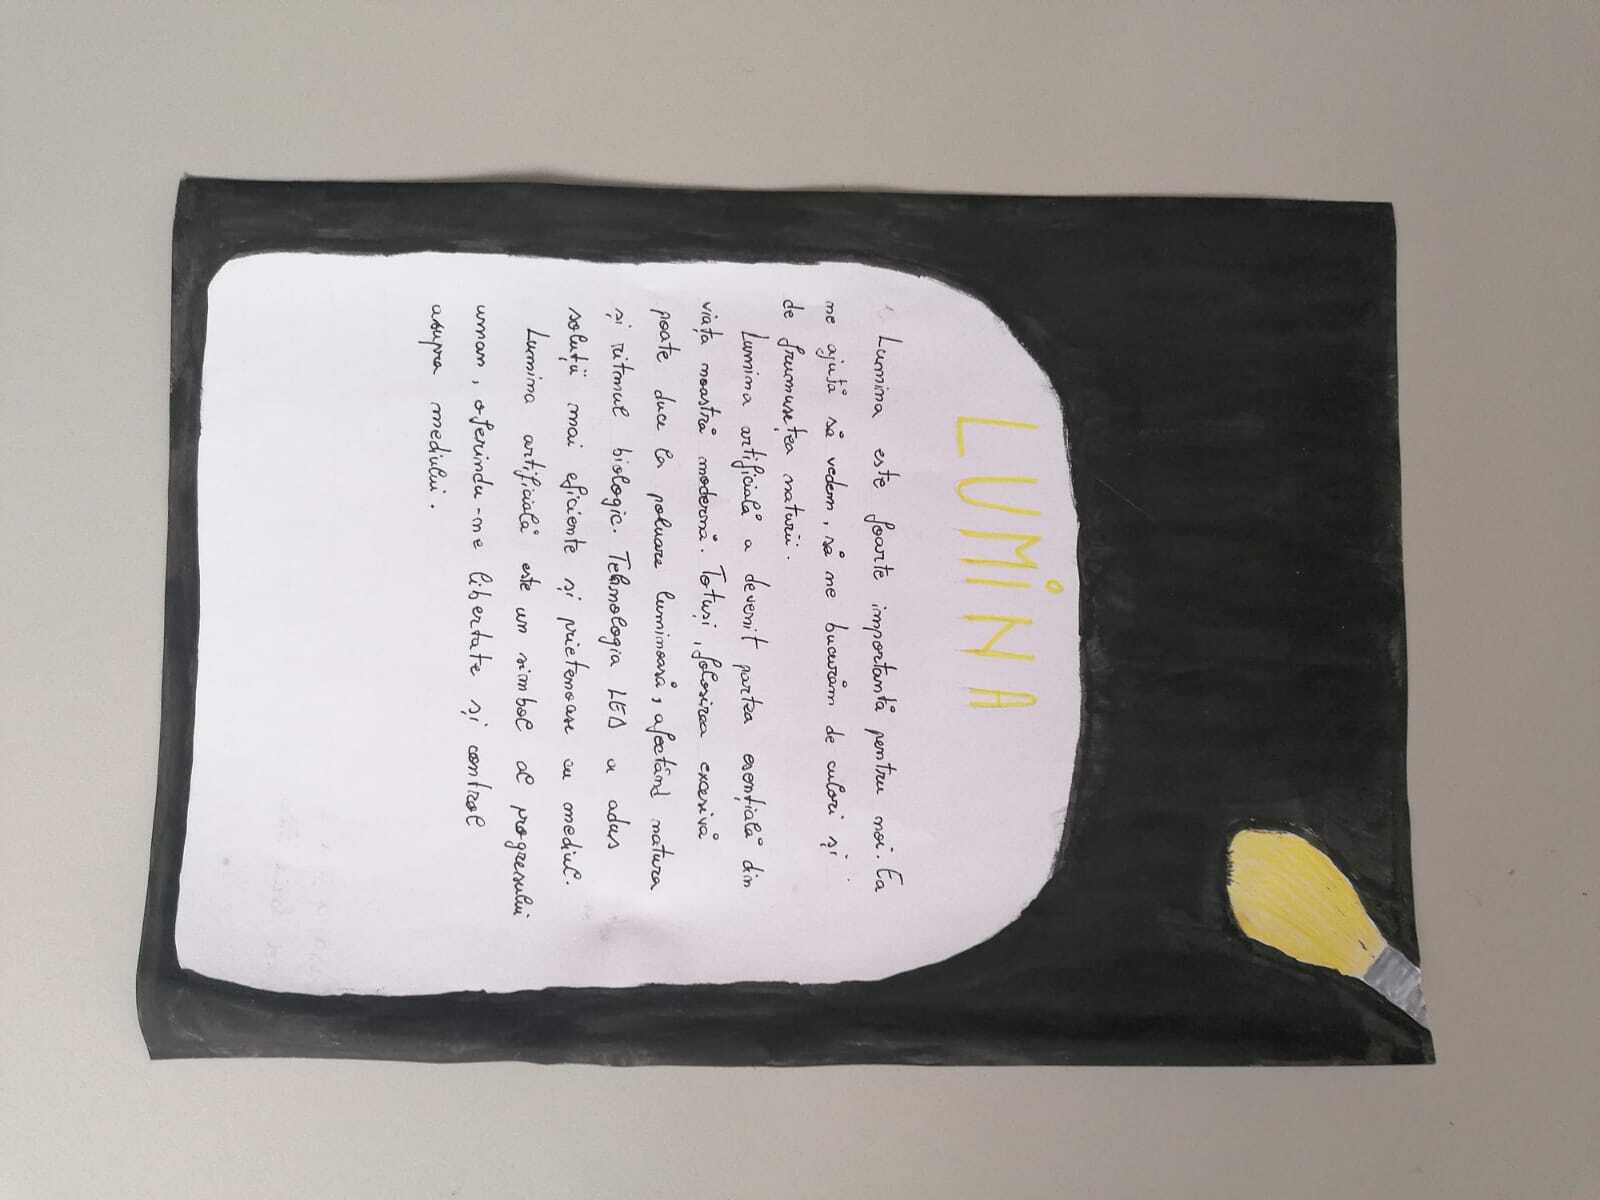 LUMINA
Lumina este foarte importantă pentru noi. Ea
ne ajută să vedem, să ne bucurăm de culori și
de frumusețea naturii.
Lumina artificială a devenit partea esențială din
viața noastră modernă. Totuși, folosirea excesivă
poate duce la poluare luminoasă, afectând natura
și ritmul biologic. Tehnologia LED a adus
soluții mai eficiente și prietenoase cu mediul.
Lumina artificială este un simbol al progresului
uman, oferindu-ne libertate și control
asupra mediului.